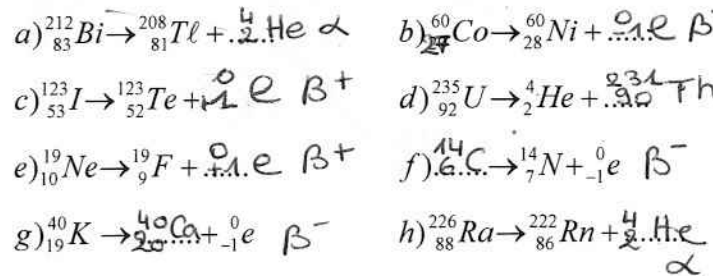 a) ²¹²₈₃Bi → ²⁰⁸₈₁Tℓ + ⁴₂He α b) ⁶⁰₂₇Co → ⁶⁰₂₈Ni + ⁰₋₁e β
c) ¹²³₅₃I → ¹²³₅₂Te + ⁰₊₁e β+ d) ²³⁵₉₂U → ⁴₂He + ²³¹₉₀Th
e) ¹⁹₁₀Ne → ¹⁹₉F + ⁰₊₁e β+ f) ¹⁴₆C → ¹⁴₇N + ⁰₋₁e β⁻
g) ⁴⁰₁₉K → ⁴⁰₂₀Ca + ⁰₋₁e β⁻ h) ²²⁶₈₈Ra → ²²²₈₆Rn + ⁴₂He
α